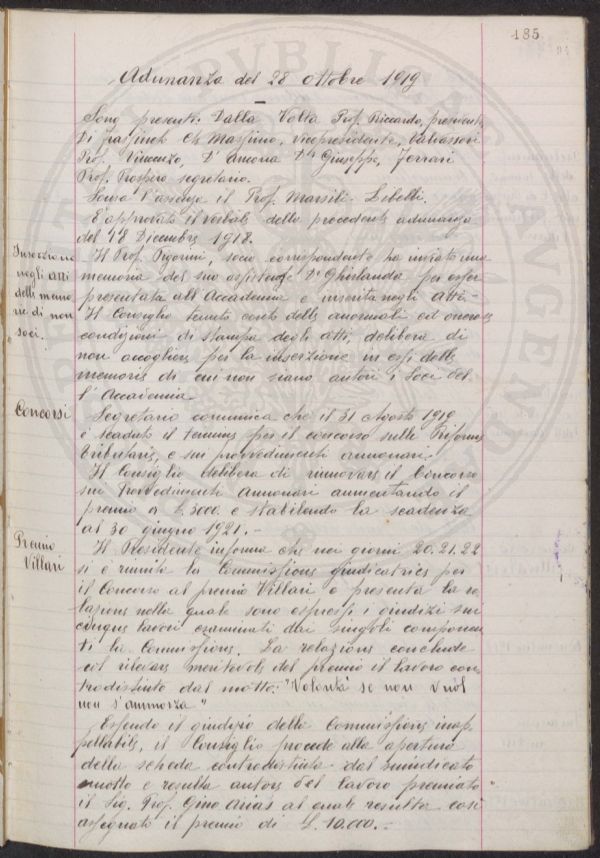 185
94
Adunanza del 28 ottobre 1919
Sono presenti: Dalla Volta Prof. Riccardo, presidente,
Di Frassineto Ch. Massimo, Vicepresidente, Valvassori
Prof. Vincenzo, D'Ancona Dr Giuseppe, Ferrari
Prof. Prospero segretario.
Scusa l'assenza il Prof. Marsili-Libelli.
È approvato il verbale della precedente adunanza
del 18 Dicembre 1918.
Inserzione
negli atti
delle memo
rie di non
soci.
Il Prof. Pigorini, socio corrispondente ha inviato una
memoria del suo assistente Dr Ghirlanda per esser
presentata all'Accademia e inserita negli atti.-
Il Consiglio tenuto conto delle anormali ed onerose
condizioni di stampa degli atti, delibera di
non accogliere per la inserzione in essi delle
memorie di cui non siano autori i Soci del
l'Accademia
Concorsi
Segretario comunica che il 31 Agosto 1919
è scaduto il termine per il concorso sulle Riforme
tributarie, e sui provvedimenti annonari.-
Il Consiglio delibera di rinnovare il Concorso
sui Provvedimenti Annonari aumentando il
premio a £ 3000. e stabilendo la scadenza
al 30 giugno 1921.-
Premio
Villari
Il Presidente informa che nei giorni 20.21.22
si è riunita la Commissione giudicatrice per
il Concorso al premio Villari e presenta la re
lazione nella quale sono espressi i giudizi sui
cinque lavori esaminati dai singoli componen
ti la Commissione. La relazione conclude
col rilevare meritevole del premio il lavoro con
tradistinto dal motto: "Volontà se non vuol
non s'ammorza"
Essendo il giudizio della Commissione inap
pellabile, il Consiglio procede alla apertura
della scheda contradistinta dal suindicato
motto e resulta autore del lavoro premiato
il Sig. Prof. Gino Arias al quale resulta così
assegnato il premio di £. 10.000.-